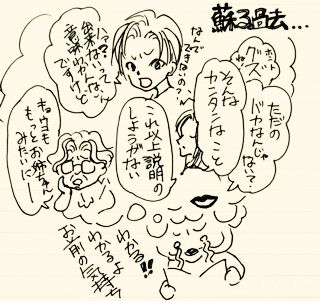 蘇る過去...
ホント
グズ
ね
ただの
バカなんじゃ
ない?
そんな
カンタンなこと
なんで
できないの?
意味わかんない
ですけど
これ以上説明の
しようがない
キョウコも
もっとお姉ちゃん
みたいにー
わかる!!
わかるよ
お前の気持ち